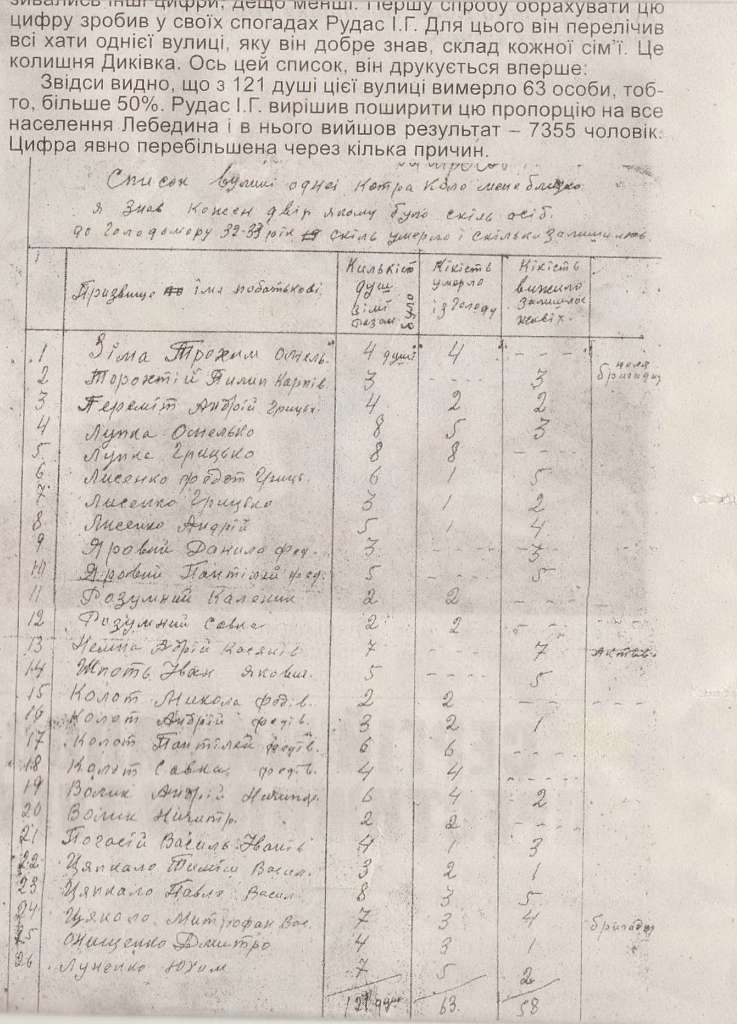 зивались інші цифри, дещо менші. Першу спробу обрахувати цю
цифру зробив у своїх спогадах Рудас І.Г. Для цього він перелічив
всі хати однієї вулиці, яку він добре знав, склад кожної сім'ї. Це
колишня Диківка. Ось цей список, він друкується вперше:
Звідси видно, що з 121 душі цієї вулиці вимерло 63 особи, тоб-
то, більше 50%. Рудас І.Г. вирішив поширити цю пропорцію на все
населення Лебедина і в нього вийшов результат – 7355 чоловік.
Цифра явно перебільшена через кілька причин.
Список вулиці одної котра коло мене близко
я знав кожен двір якому було скіль осіб
до Голодомору 32-33 рік скіль умерло і скілько залишилось.
Призвище імя побатькові Килькіст душ вімї разом було Кікість умерло із голоду Кікість вижило залишилос живіх.
1 Зіма Трохим Омель. 4 душі 4 - - -
2 Торохтій Пилип Карпів 3 - - - 3 бригадир
3 Переміт Андрій Грицьк. 4 2 2
4 Лупка Омелько 8 5 3
5 Лупка Грицько 8 8 - - -
6 Лисенко Федот Гриць. 6 1 5
7 Лисенко Грицько 3 1 2
8 Лисенко Андрій 5 1 4
9 Яровий Данило фед. 3 - - - 3
10 Яровий Пантілей фед. 5 - - - 5
11 Розумний Каленик 2 2 - - -
12 Розумний Савка 2 2 - - -
13 Андрій Касянів 7 - - - 7 актив.
14 Шпоть Іван Якови. 5 - - - 5
15 Колот Микола Федів. 2 2 - - -
16 Колот Андрій федів. 3 2 1
17 Колот Пантілей федів. 6 6 - - -
18 Колот Савка федів. 4 4 - - -
19 Волик Андрій Ничипо. 6 4 2
20 Волик 2 2 - - -
21 Погасій Василь Іванів 4 1 3
22 Цяпкало Тиміш Васил. 3 2 1
23 Цяпкало Павло Васил. 8 3 5
24 Цякало Митрофан Вас. 7 3 4 бригадир
25 Онищенко Дмитро 4 3 1
26 Луненко Юхим 7 5 2
121 душ 63. 58